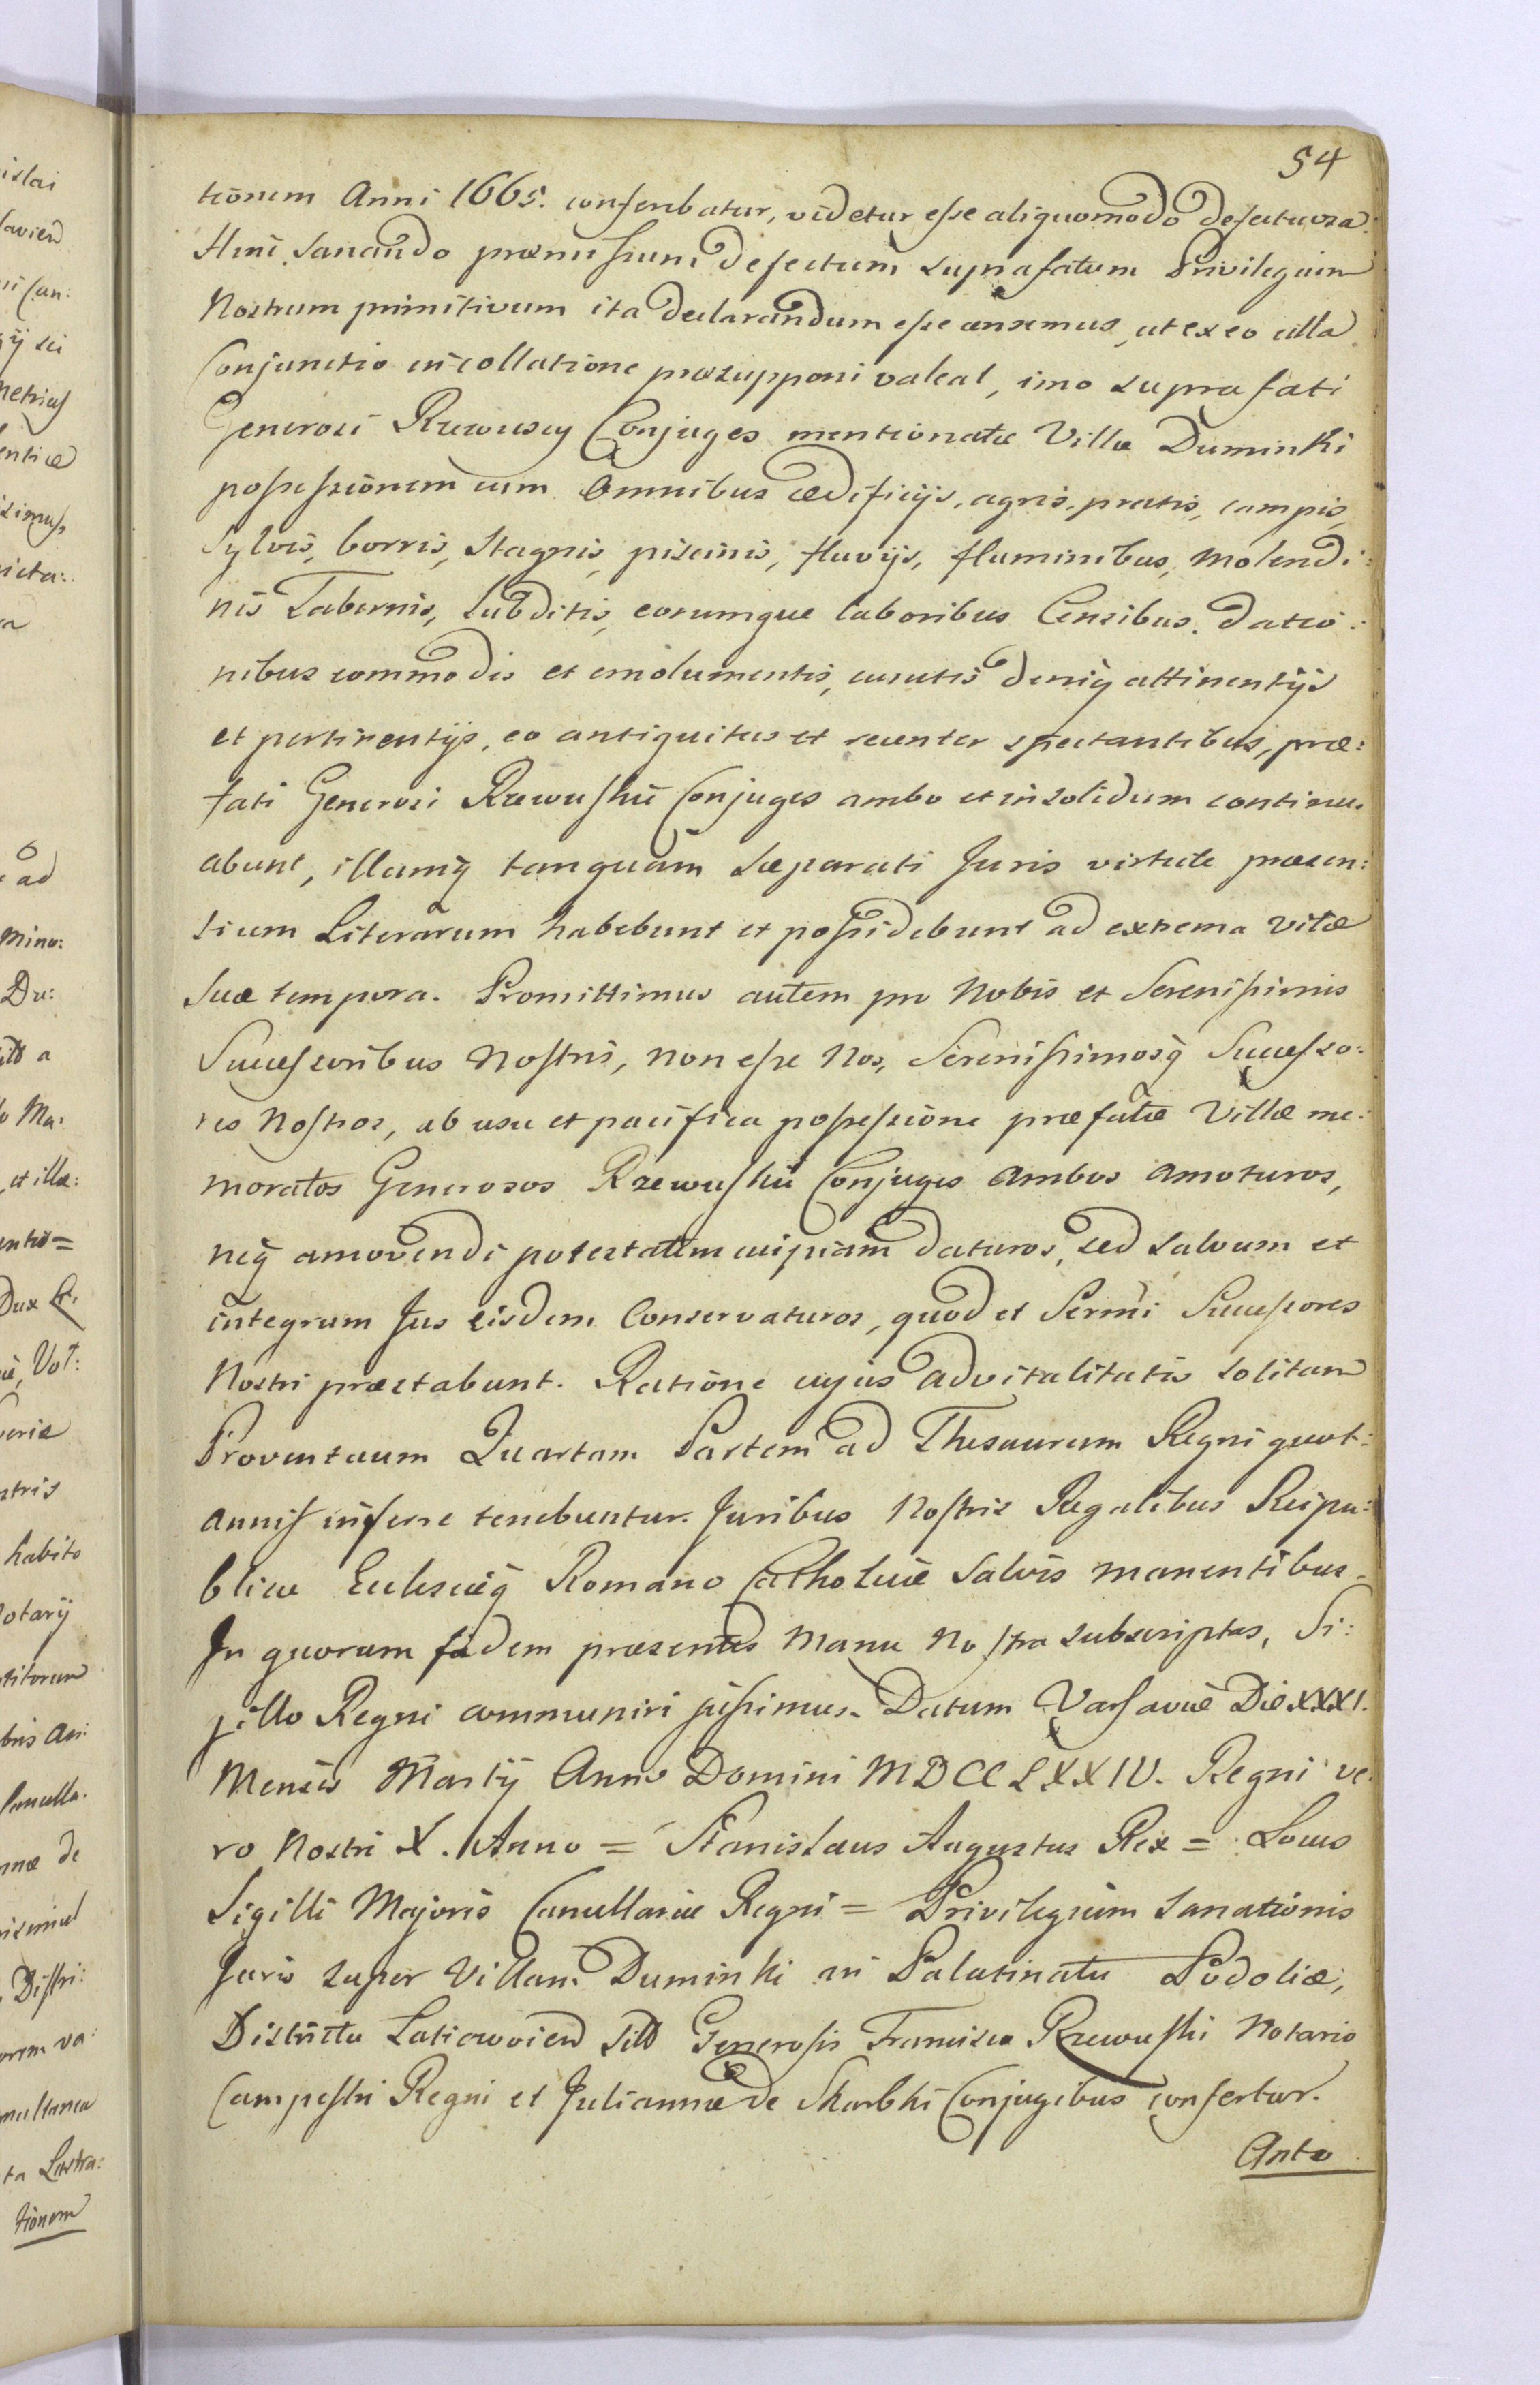 54
tionem Anni 1665. conferebatur, videtur esse aliquomodo defectuosa.
Hinc sanando præmissum defectum suprafatum Privilegium
Nostrum primitivum ita declarandum esse censemus, ut ex eo ulla
Conjunctio in collatione præsupponi valeat, imo suprafati
Generosi Rzewuscy Conjuges mentionatæ Villæ Duminki
possessionem cum omnibus ædificijs, agris, pratis, campis,
Sylvis, borris, Stagnis, piscinis, fluvijs, fluminibus, Molendi:
nis Tabernis, Subditis, eorumque laboribus Censibus. datio:
nibus commodis et emolumentis, cunctis deniq attinentijs
et pertinentijs, eo antiquitus et recenter spectantibus, præ:
fati Generosi Rzewuskii Conjuges ambo et in solidum continu.
abunt, illamq tanquam sæparati Juris virtute præsen:
tium Literarum habebunt et possidebunt ad extrema vitæ
Suæ tempora. Promittimus autem pro Nobis et Serenissimis
Successoribus Nostris, non esse Nos, Serenissimosq Successo:
res Nostros, ab usu et pacifica possessione præfatæ Villæ me:
moratos Generosos Rzewuskii Conjuges Ambos amoturos,
neq amovendi potestatem cuipiam daturos, sed salvum et
integrum Jus eisdem Conservaturos, quod et Sermi Successores
Nostri præstabunt. Ratione cujus advitalitatis solitam
Proventuum Quartam Partem ad Thesaurum Regni quot:
annis inferre tenebuntur. Juribus Nostris Regalibus Reipu:
blicæ Eclesiæq Romano Catholicæ Salvis manentibus.
In quorum fidem præsentes Manu Nostra subscriptas, Si:
gillo Regni communiri jussimus. Datum Varsaviæ Die XXXI.
Mensis Martij Anno Domini MDCCLXXIV. Regni ve:
ro Nostri X. Anno = Stanislaus Augustus Rex = Locus
Sigilli Majoris Cancellariæ Regni = Privilegium Sanationis
Juris super Villam Duminki in Palatinatu Podoliæ,
Districtu Laticoviens sitt Generosis Francisco Rzewuski Notario
Campestri Regni et Juliannæ de Skarbki Conjugibus confertur.
Anto